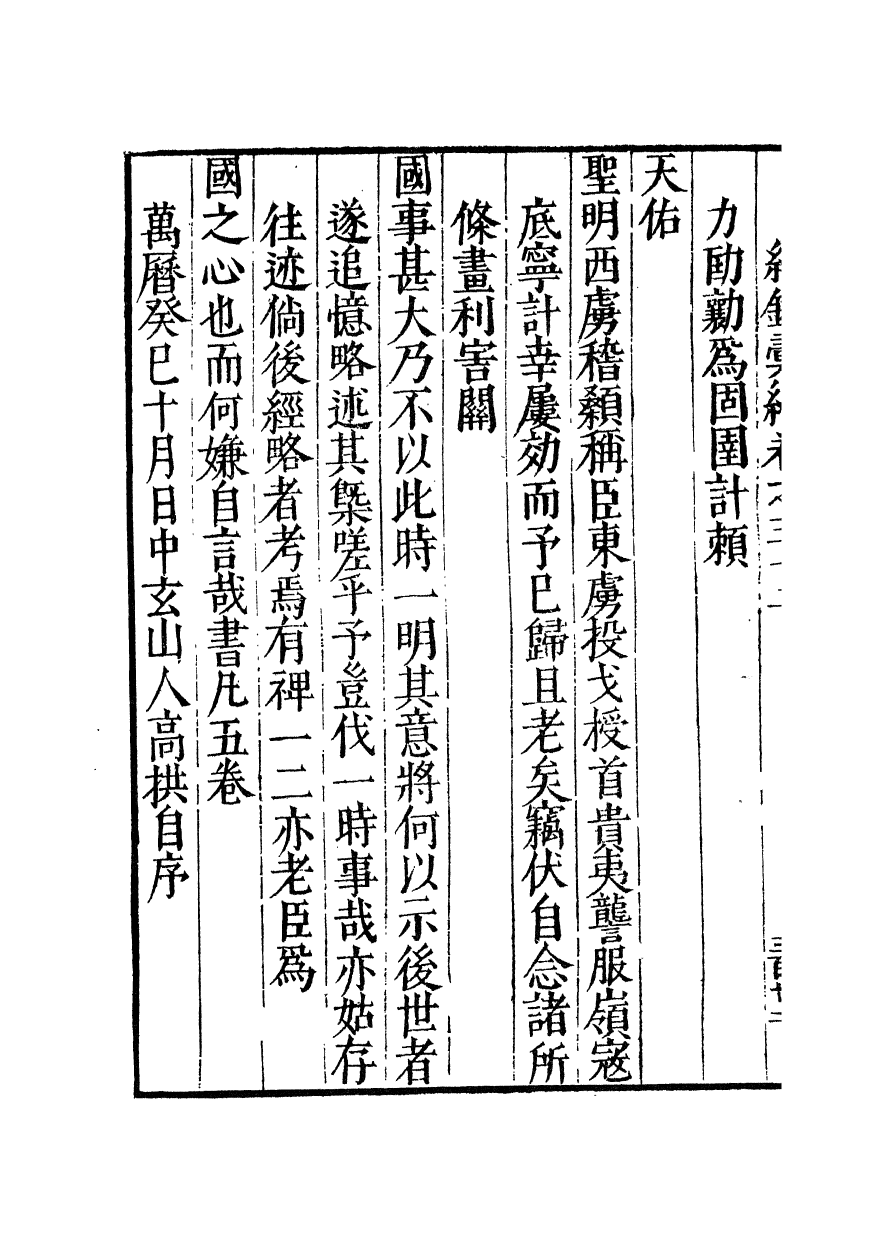 力劻勷爲固圉計賴
天佑
聖明西虜稽顙稱臣東虜投戈授首貴夷讋服嶺寇
底寧計幸屢効而予已歸且老矣竊伏自念諸所
條畫利害關
國事甚大乃不以此時一明其意將何以示後世者
遂追憶略述其槩嗟乎予豈伐一時事哉亦姑存
往迹倘後經略者考焉有裨一二亦老臣爲
國之心也而何嫌自言哉書凡五卷
萬曆癸巳十月日中玄山人高拱自序